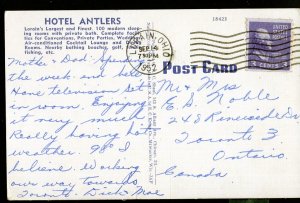 HOTEL ANTLERS
Lorain's Largest and Finest. 100 modern sleeping rooms with private bath. Complete facilities for Conventions, Private Parties,
Air-conditioned Cocktail Lounge and
Rooms. Nearby bathing beach, golf,
fishing, etc.
Mother & Dad: Spend
the week end here
Home television set
in soon. Enjoying
it very much
Really having hot
weather. 90° I
believe. Working
our way towards
Toronto. Dick & Mae
18423
LORAIN, OHIO
SEP 14
7 30 PM
1952
POST CARD
Mr & Mrs
E. D. Noble
248 Riverside Dr
Toronto 3
Ontario.
Canada